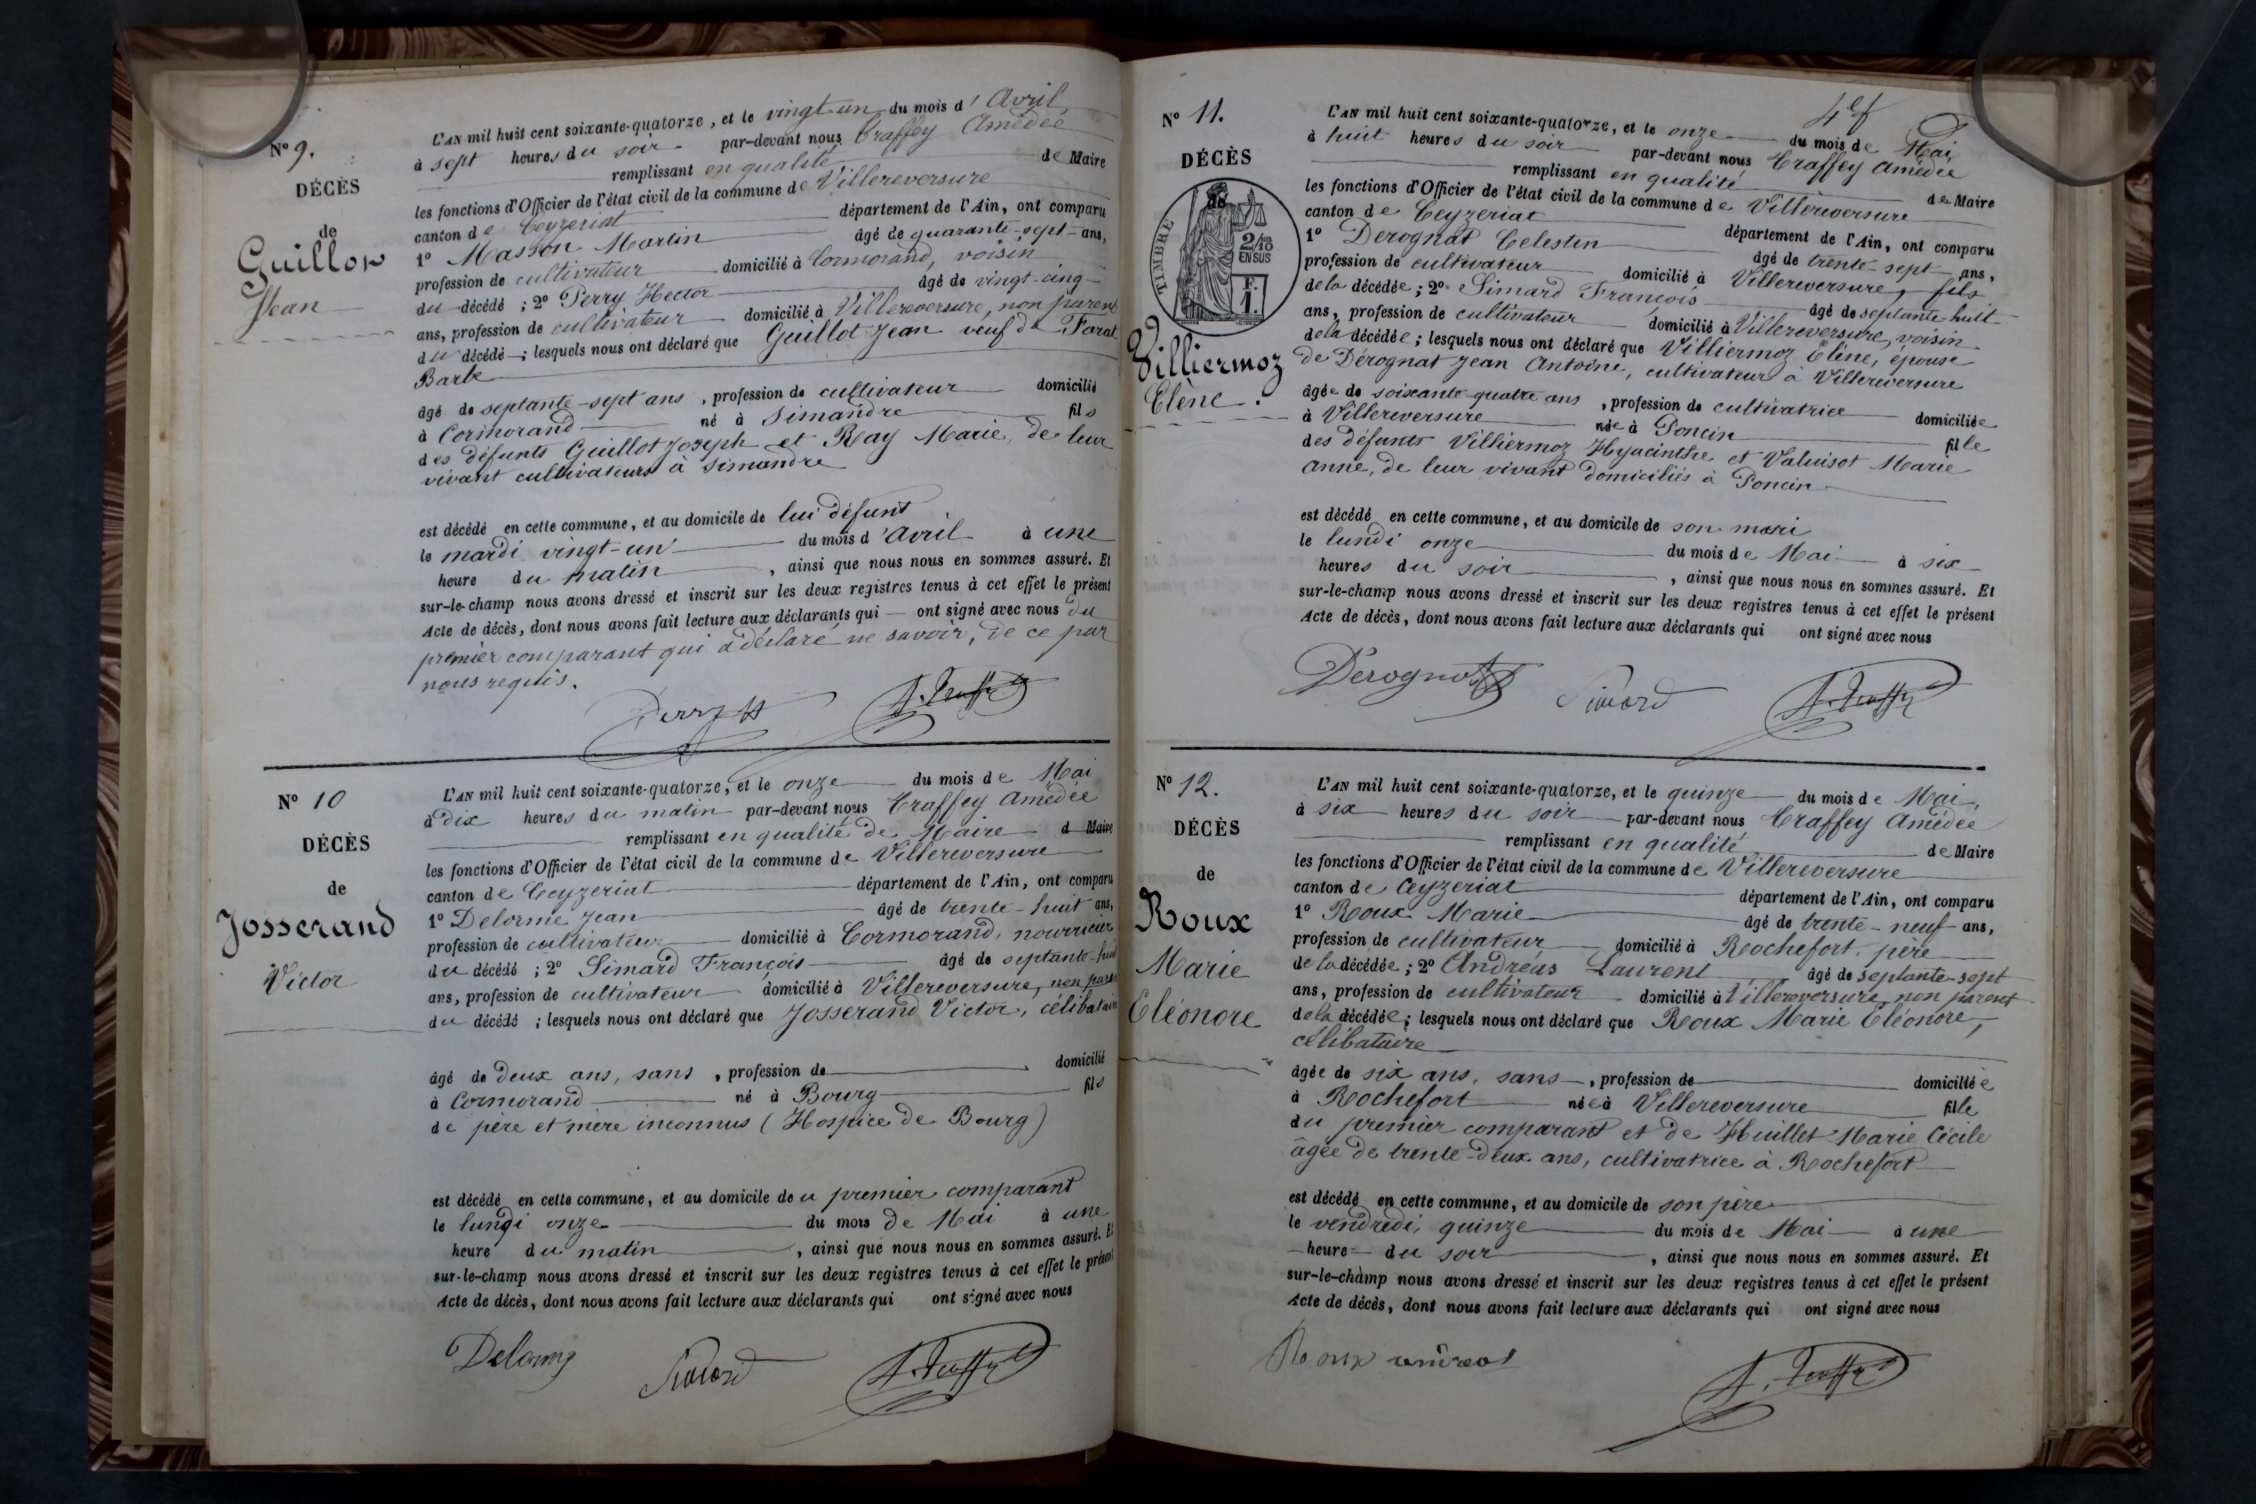 N° 9.
DÉCÈS
de
Guillot
Jean
L'AN mil huit cent soixante-quatorze, et le vingt-un du mois d'Avril
à sept heures du soir par-devant nous Traffey Amédée
remplissant en qualité de Maire
les fonctions d'Officier de l'état civil de la commune de Villereversure
canton de Ceyzeriat département de l'Ain, ont comparu
1° Masson Martin âgé de quarante-sept ans,
profession de cultivateur domicilié à Cormorand, voisin
du décédé ; 2° Perry Hector âgé de vingt-cinq
ans, profession de cultivateur domicilié à Villereversure, non parent
du décédé ; lesquels nous ont déclaré que Guillot Jean veuf de Farat
Barbe
âgé de septante-sept ans, profession de cultivateur domicilié
à Cormorand né à Simandre fils
des défunts Guillot Joseph et Ray Marie, de leur
vivant cultivateurs à Simandre
est décédé en cette commune, et au domicile de lui défunt
le mardi vingt-un du mois d'Avril à une
heure du matin, ainsi que nous nous en sommes assuré. Et
sur-le-champ nous avons dressé et inscrit sur les deux registres tenus à cet effet le présent
Acte de décès, dont nous avons fait lecture aux déclarants qui ont signé avec nous du
premier comparant qui a déclaré ne savoir, de ce par
nous requis.
Perry H A. Traffey
N° 10
DÉCÈS
de
Josserand
Victor
L'AN mil huit cent soixante-quatorze, et le onze du mois de Mai
à dix heures du matin par-devant nous Traffey Amédée
remplissant en qualité de Maire d Maire
les fonctions d'Officier de l'état civil de la commune de Villereversure
canton de Ceyzeriat département de l'Ain, ont comparu
1° Delorme Jean âgé de trente-huit ans,
profession de cultivateur domicilié à Cormorand, nourricier
du décédé ; 2° Simard François âgé de septante-huit
ans, profession de cultivateur domicilié à Villereversure, non parent
du décédé ; lesquels nous ont déclaré que Josserand Victor, célibataire
âgé de deux ans, sans, profession de domicilié
à Cormorand né à Bourg fils
de père et mère inconnus (Hospice de Bourg)
est décédé en cette commune, et au domicile de u premier comparant
le lundi onze du mois de Mai à une
heure du matin, ainsi que nous nous en sommes assuré. Et
sur-le-champ nous avons dressé et inscrit sur les deux registres tenus à cet effet le présent
Acte de décès, dont nous avons fait lecture aux déclarants qui ont signé avec nous
Delorme Simard A. Traffey
4ef
N° 11.
DÉCÈS
de
TIMBRE
2/10
EN SUS
F.
1.
Villiermoz
Elène.
L'AN mil huit cent soixante-quatorze, et le onze du mois de Mai,
à huit heures du soir par-devant nous Traffey Amédée
remplissant en qualité de Maire
les fonctions d'Officier de l'état civil de la commune de Villereversure
canton de Ceyzeriat département de l'Ain, ont comparu
1° Derognat Celestin âgé de trente-sept ans,
profession de cultivateur domicilié à Villereversure, fils
de la décédée ; 2° Simard François âgé de septante-huit
ans, profession de cultivateur domicilié à Villereversure, voisin
de la décédée ; lesquels nous ont déclaré que Villiermoz Elène, épouse
de Dérognat Jean Antoine, cultivateur à Villereversure
âgée de soixante-quatre ans, profession de cultivatrice domiciliée
à Villereversure née à Poncin fille
des défunts Villiermoz Hyacinthe et Valuisot Marie
Anne, de leur vivant domiciliés à Poncin
est décédé en cette commune, et au domicile de son mari
le lundi onze du mois de Mai à six
heures du soir, ainsi que nous nous en sommes assuré. Et
sur-le-champ nous avons dressé et inscrit sur les deux registres tenus à cet effet le présent
Acte de décès, dont nous avons fait lecture aux déclarants qui ont signé avec nous
Dérognat Simard A. Traffey
N° 12.
DÉCÈS
de
Roux
Marie
Eléonore
L'AN mil huit cent soixante-quatorze, et le quinze du mois de Mai,
à six heures du soir par-devant nous Traffey Amédée
remplissant en qualité de Maire
les fonctions d'Officier de l'état civil de la commune de Villereversure
canton de Ceyzeriat département de l'Ain, ont comparu
1° Roux Marie âgé de trente-neuf ans,
profession de cultivateur domicilié à Rochefort, père
de la décédée ; 2° Andréas Laurent âgé de septante-sept
ans, profession de cultivateur domicilié à Villereversure, non parent
de la décédée ; lesquels nous ont déclaré que Roux Marie Eléonore,
célibataire
âgée de six ans, sans, profession de domiciliée
à Rochefort née à Villereversure fille
du premier comparant et de Huillet Marie Cécile
âgée de trente-deux ans, cultivatrice à Rochefort
est décédé en cette commune, et au domicile de son père
le vendredi quinze du mois de Mai à une
heure du soir, ainsi que nous nous en sommes assuré. Et
sur-le-champ nous avons dressé et inscrit sur les deux registres tenus à cet effet le présent
Acte de décès, dont nous avons fait lecture aux déclarants qui ont signé avec nous
Roux A. Traffey